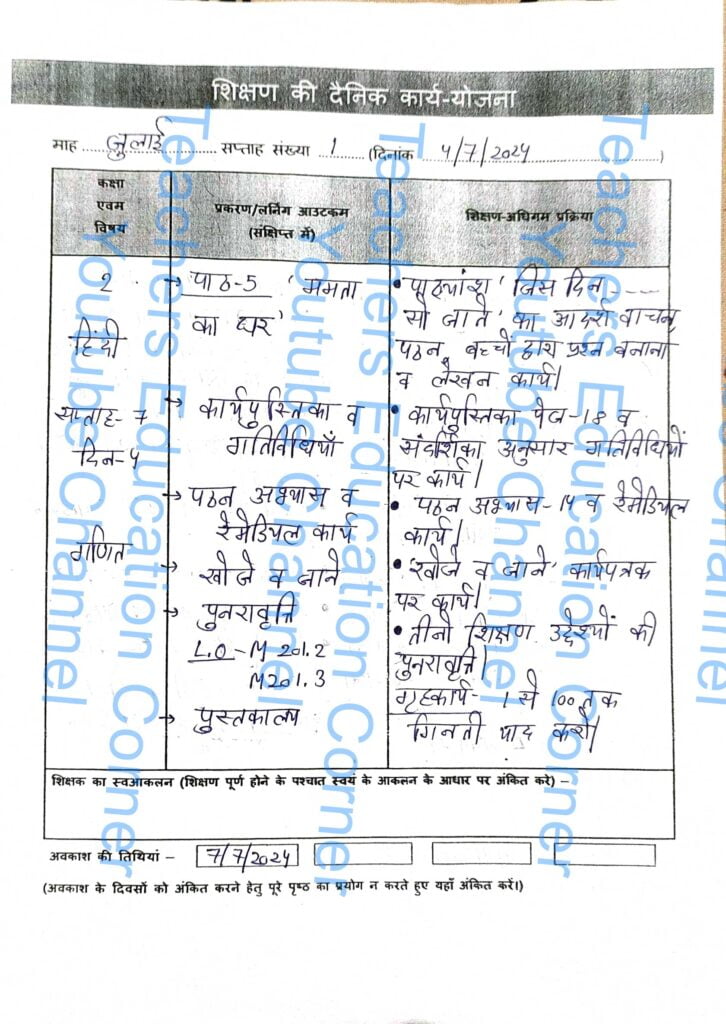 शिक्षण की दैनिक कार्य-योजना
माह जुलाई सप्ताह संख्या 1 (दिनांक 4/7/2024)
कक्षा
एवम
विषय
प्रकरण/लर्निंग आउटकम
(संक्षिप्त में)
शिक्षण-अधिगम प्रक्रिया
2
हिंदी
सप्ताह-7
दिन-4
गणित
→ पाठ-5 'ममता
का घर'
→ कार्यपुस्तिका व
गतिविधियाँ
→ पठन अभ्यास व
रेमेडियल कार्य
→ खोजे व जाने
→ पुनरावृत्ति
L.O - M 201.2
M201.3
→ पुस्तकालय
• पाठ्यांश 'जिस दिन ----
सो जाते' का आदर्श वाचन,
पठन, बच्चों द्वारा प्रश्न बनाना
व लेखन कार्य।
• कार्यपुस्तिका पेज-18 व
संदर्शिका अनुसार गतिविधियों
पर कार्य।
• पठन अभ्यास-14 व रेमेडियल
कार्य।
• 'खोजे व जाने' कार्यपत्रक
पर कार्य।
• तीनो शिक्षण उद्देश्यों की
पुनरावृत्ति।
गृहकार्य- 1 से 100 तक
गिनती याद करो।
शिक्षक का स्वआकलन (शिक्षण पूर्ण होने के पश्चात स्वयं के आकलन के आधार पर अंकित करे) –
अवकाश की तिथियां – 7/7/2024
(अवकाश के दिवसों को अंकित करने हेतु पूरे पृष्ठ का प्रयोग न करते हुए यहाँ अंकित करें।)
Teachers Education Corner
Youtube Channel
Teachers Education Corner
Youtube Channel
Teachers Education Corner
Youtube Channel